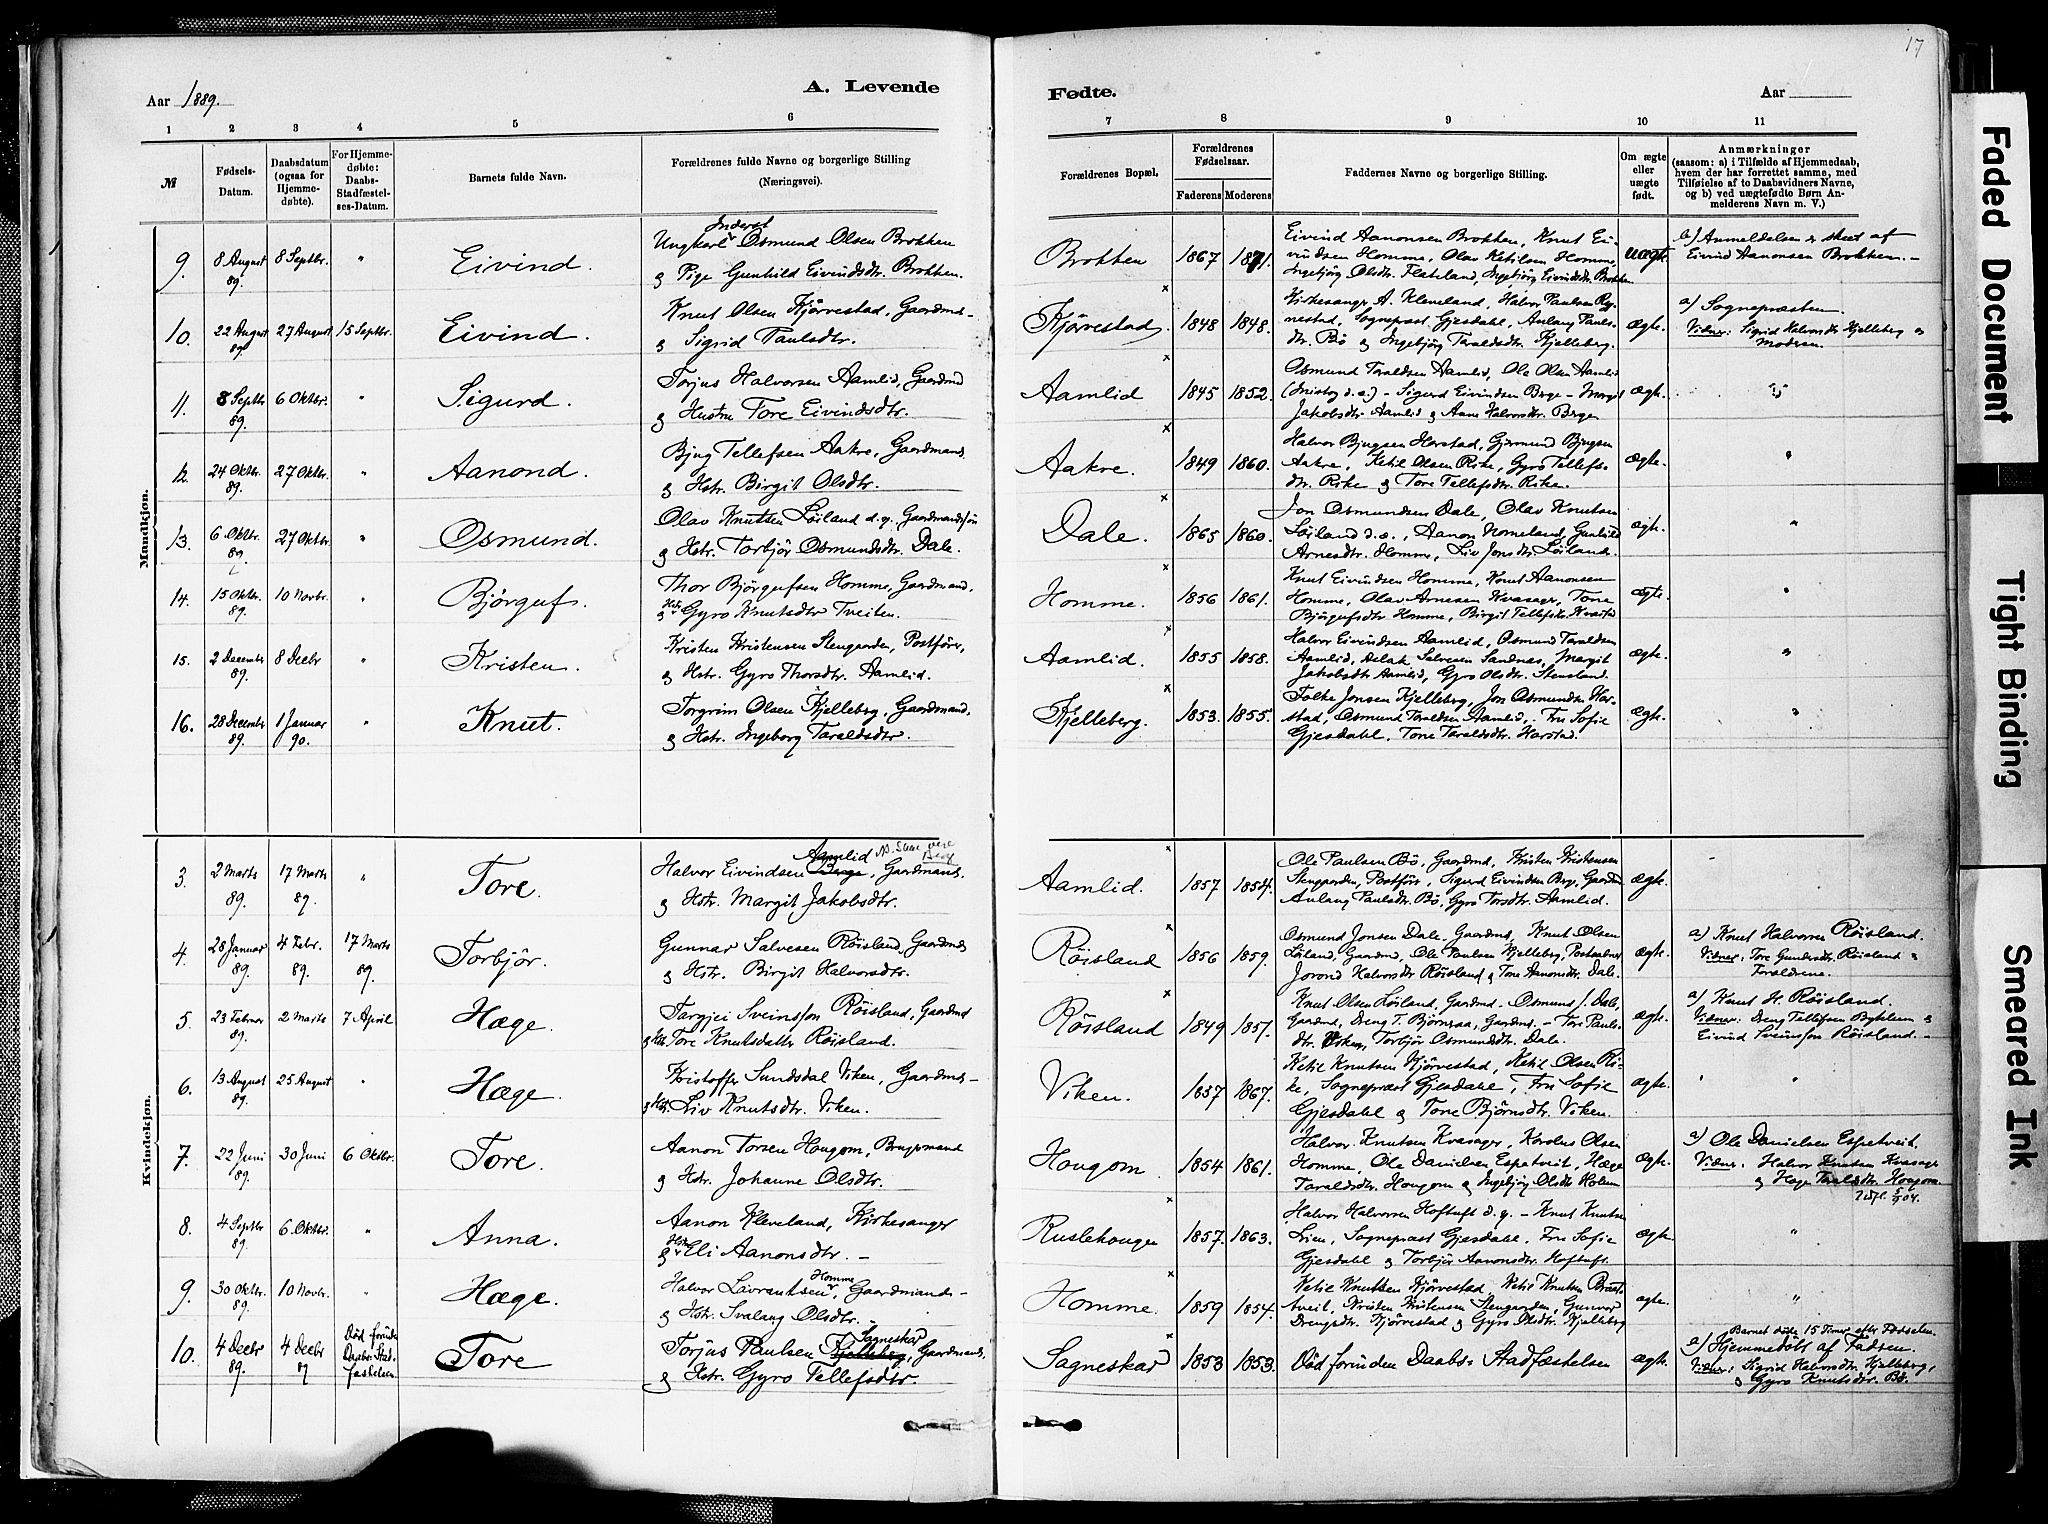 17
Aar 1889.
A. Levende
Fødte.
Aar
1 2 3 4 5 6 7 8 9 10 11
№
Fødsels-Datum.
Daabsdatum (ogsaa for Hjemmedøbte).
For Hjemmedøbte: Daabs-Stadfæstelses-Datum.
Barnets fulde Navn.
Forældrenes fulde Navne og borgerlige Stilling (Næringsvei).
Forældrenes Bopæl.
Forældrenes Fødselsaar.
Faderens
Moderens
Faddernes Navne og borgerlige Stilling.
Om ægte eller uægte født.
Anmærkninger
(saasom: a) i Tilfælde af Hjemmedaab,
hvem der har forrettet samme, med
Tilføielse af to Daabsvidners Navne,
og b) ved uægtefødte Børn Anmelderens Navn m. V.)
Mandkjøn.
9. 8 August 89. 8 Septbr. " Eivind.
Inderst
Ungkarl Osmund Olsen Brokken
& Pige Gunhild Eivindsdtr. Brokken.
Brokken 1867 1871.
Eivind Aanonsen Brokken, Knut Ei-
vindsen Homme, Olav Ketilsen Homme,
Ingebjørg Olsdtr. Flateland, Ingebjørg Eivindsdtr. Brokken
uægte.
b) Anmeldelsen er skeet af
Eivind Aanonsen Brokken. -
10. 22 August 89 27 August 15 Septbr. Eivind.
Knut Olsen Kjørvestad, Gaardmd -
& Sigrid Paulsdtr.
Kjørvestad. 1848 1848.
Kirkesanger A. Kleveland, Halvor Paulsen Ryg-
nestad, Sognepræst Gjesdahl, Aslaug Pauls-
dtr. Bø & Ingebjörg Taraldsdtr. Kjelleberg.
ægte.
a) Sognepræsten.
Vidner: Sigrid Halvorsdtr Kjelleberg &
Moderen.
11. 8 Septbr 89. 6 Oktbr. " Sigurd.
Torjus Halvorsen Aamlid, Gaardmd
& Hustru Tore Eivindsdtr.
Aamlid 1845 1852.
Osmund Taraldsen Aamlid, Ole Olsen Aamlid
- Sigurd Eivindsen Berge - Margit
Jakobsdtr Aamlid & Aane Halvorsdtr. Bergen
ægte.
12. 24 Oktbr. 89. 27 Oktbr. " Aanond.
Bjug Tellefsen Aakre, Gaardmand
& Hstr. Birgit Olsdtr.
Aakre. 1849 1860.
Halvor Bjugsen Harstad, Gjermund Bjugsen
Aakre, Ketil Olsen Rike, Gyro Tellefs-
dtr. Rike & Tore Tellefsdtr. Rike.
ægte. "
13. 6 Oktbr. 89. 27 Oktbr. " Osmund.
Olav Knutsen Løiland d.y. Gaardmandssøn
& Hstr. Torbjør Osmundsdtr. Dale.
Dale. 1865 1860.
Jon Osmundsen Dale, Olav Knutsen
Løiland d.æ., Aanon Nomeland, Gunhild
Arnesdtr. Homme, Liv Jonsdtr. Løiland.
ægte. "
14. 15 Oktbr. 89. 10 Novbr. " Bjørguf.
Thor Bjørgufsen Homme, Gaardmand,
& Hstr. Gyro Knutsdtr Tveiten.
Homme. 1856 1861.
Knut Eivindsen Homme, Knut Aanonsen
Homme, Olav Arnesen Kvasager, Tone
Bjørgufsdtr Homme, Birgit Tellefsdtr. Harstad
ægte. "
15. 2 December 89. 8 Decbr " Kristen.
Kristen Kristensen Stengaarden, Postfører,
& Hstr. Gyro Thorsdtr. Aamlid.
Aamlid. 1855 1858.
Halvor Eivindsen Aamlid, Osmund Taraldsen
Aamlid, Aslak Salvesen Sandnes, Margit
Jakobsdtr Aamlid, Gyro Olsdtr. Stensland.
ægte. "
16. 28 December 89. 1 Januar 90. " Knut.
Torgrim Olsen Kjelleberg, Gaardmand,
& Hstr. Ingeborg Taraldsdtr.
Kjelleberg. 1853. 1855.
Folke Jonsen Kjelleberg, Jon Osmundsen Har-
stad, Osmund Taraldsen Aamlid, Fru Sofie
Gjesdahl, Tone Taraldsdtr. Harstad.
ægte. "
Kvindekjøn.
3. 2 Marts 89. 17 Marts 89. " Tore.
Aamlid
Halvor Eivindsen Berge, Gaardmand.
& Hstr. Margit Jakobsdtr.
Aamlid. 1857 1854.
Ole Paulsen Bö, Gaardmd, Kristen Kristensen
Stengaarden, Postfører, Sigurd Eivindsen Berg, Gaardmd
Aslaug Paulsdtr. Bö, Gyro Torsdtr. Aamlid.
ægte. "
4. 28 Januar 89. 4 Febr. 89. 17 Marts 89. Torbjør.
Gunnar Salvesen Røisland, Gaardmd
& Hstr. Birgit Halvorsdtr.
Røisland 1856 1859.
Osmund Jonsen Dale, Gaardmd, Knut Olsen
Løiland, Gaardmd, Ole Paulsen Kjelleberg, Postaabner
Jorond Halvorsdtr Røisland & Tore Aanonsdtr. Dale.
ægte.
a) Knut Halvorsen Røisland.
Vidner: Tore Gundersdtr. Røisland &
Forældrene.
5. 23 Februar 89. 2 Marts 7 April Hæge.
Targjei Sveinsson Røisland, Gaardmd
& Hstr. Tore Knutsdatter Røisland.
Røisland 1849 1851.
Knut Olsen Løiland, Gaardmd. Osmund J. Dale,
Gaardmd, Dreng T. Bjørnraa, Gaardmd. - Tore Pauls-
dtr. Torbjør Osmundsdtr. Dale.
ægte.
a) Knut H. Røisland.
Vidner: Dreng Tellefsen Byklum &
Eivind Sveinsson Røisland. -
6. 13 August 89. 25 August " Hæge.
Kristoffer Sundsdal Viken, Gaardmd -
& Hstr. Liv Knutsdtr. Viken.
Viken. 1857 1867.
Ketil Knutsen Kjørvestad, Ketil Olsen Ri-
ke, Sognepræst Gjesdahl, Fru Sofie
Gjesdahl & Tone Bjørnsdtr. Viken.
ægte. "
7. 22 Juni 89. 30 Juni 6 Oktbr. Tore.
Aanon Torsen Hougom, Brugsmand
& Hstr. Johanne Olsdtr.
Hougom 1854 1861.
Halvor Knutsen Kvasager, Karolus Olsen
Homme, Ole Danielsen Espetveit, Hæge
Taraldsdtr. Hougom & Ingebjørg Olsdtr Holum
ægte.
a) Ole Danielsen Espetveit.
Vidner: Halvor Knutsen Kvasager
& Hæge Taraldsdtr. Hougom.
8. 4 Septbr 89. 6 Oktbr. " Anna.
Aanon Kleveland, Kirkesanger
& Hstr. Eli Aanonsdtr. -
Ruslehougen 1857. 1863.
Halvor Halvorsen Hoftuft d.y. - Knut Knutsen
Lien, Sognepræst Gjesdahl, Fru Sofie
Gjesdahl & Torbjør Aanonsdtr. Hoftuft.
ægte. "
9. 30 Oktbr. 89. 10 Novbr. " Hæge.
Homme
Halvor Lavrantsen, Gaardmand -
& Hstr. Svalaug Olsdtr. -
Homme. 1859 1854.
Ketil Knutsen Kjørvestad Ketil Knutsen Braat-
tveit, Kristen Kristensen Stengaarden, Gunvor
Drengsdtr. Kjørvestad & Gyro Olsdtr. Kjelleberg
ægte. "
10. 4 Decbr 89. 4 Decbr 89 Død forinden Daabs-Stadfæstelsen. Tore
Sagneskar
Torjus Paulsen Kjelleberg, Gaardmand,
& Hstr. Gyro Tellefsdtr.
Sagneskar 1853 1853.
Død forinden Daabs-Stadfæstelsen
ægte.
Barnet døde 15 Timer efter Fødselen.
a) Hjemmedøbt af Faderen.
Vidner: Sigrid Halvorsdtr Kjelleberg,
& Gyro Knutsdtr. Bø.
Faded Document
Tight Binding
Smeared Ink